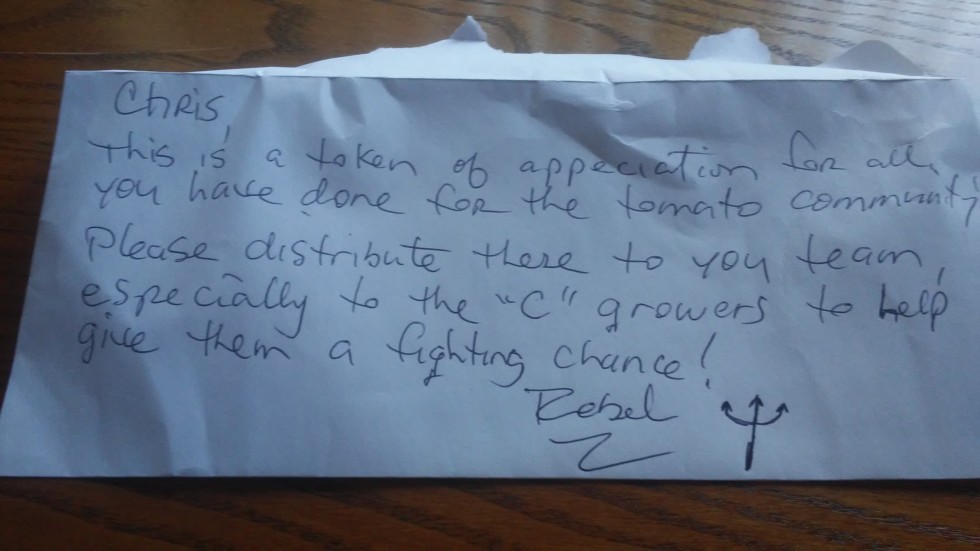 Chris,
This is a token of appeciation for all
you have done for the tomato community
Please distribute these to you team,
especially to the "C" growers to help
give them a fighting chance!
Rebel